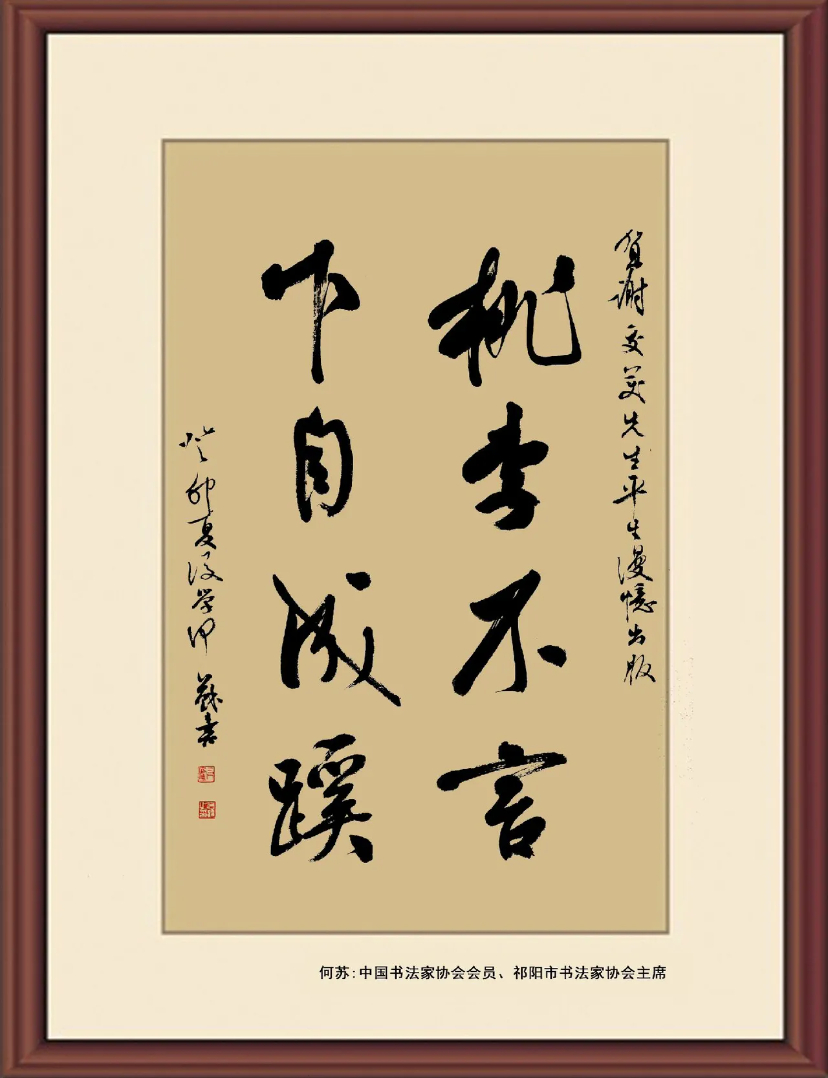 贺谢交美先生平生漫憶出版
桃李不言
下自成蹊
癸卯夏后学何蘇書
何苏:中国书法家协会会员、祁阳市书法家协会主席